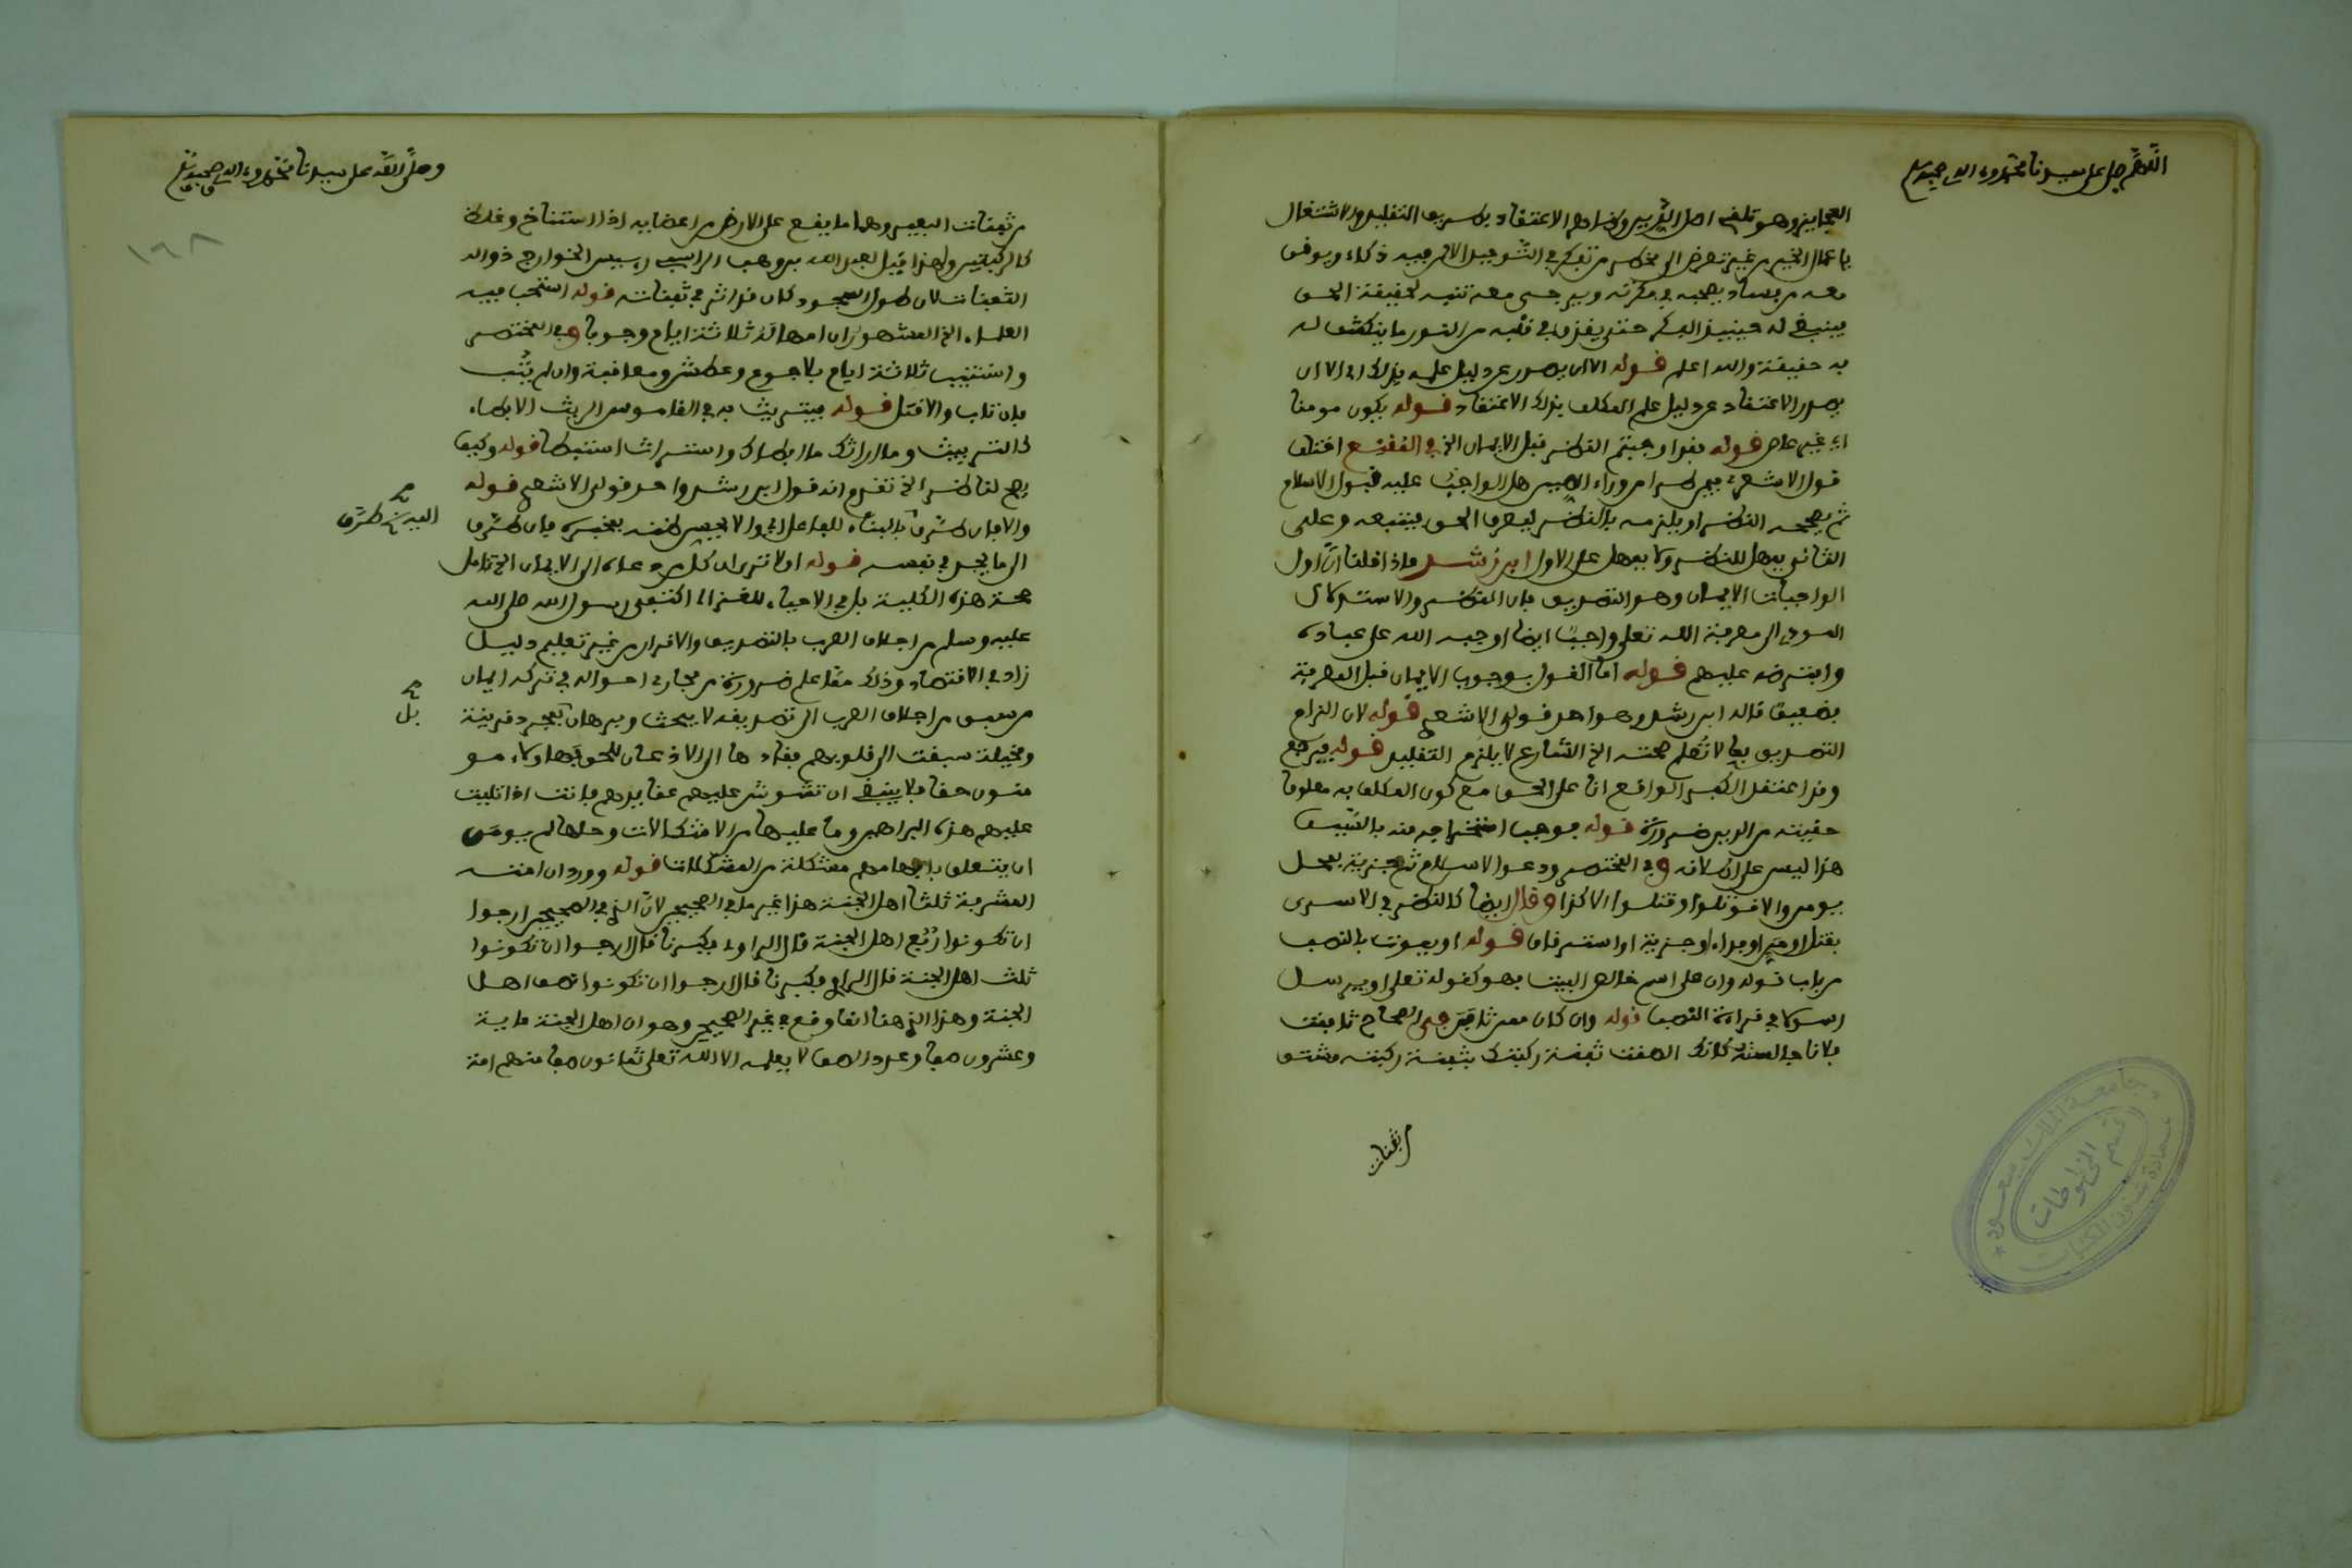 اللهم صل على سيدنا محمد وءاله وصحبه وسلم
العجايز وهو تلقى اصل الدين وظواهر الاعتقاد بطريق التقليد والاشتغال
باعمال الخير من غير تعرض الى نظر من تفكر في التوحيد الا من فيه ذكاء ويوفق
معه من يستاد يصحبه في فكرته ويرجى معه تنبه لحقيقة الحق
فينبغي له حينيذ الفكر حتى يقذف في قلبه من النور ما ينكشف له
به حقيقته والله اعلم قوله الا ان يصدر عن دليل علمه بذلك اي الا ان
يصدر الاعتقاد عن دليل علم المكلف بذلك الاعتقاد قوله يكون مومنا
اي غير عاص قوله فقد اوجبتم النظر قبل الايمان الخ في المقترح اختلف
قول الاشعري فيمن طرا من وراء الصين هل الواجب عليه قبول الاسلام
ثم يصحح النظر او يلزمه بالنظر ليعرف الحق فيتبعه وعلى
الثاني يمهل للنظر ولا يمهل على الاول ابن رشد واذا قلنا ان اول
الواجبات الايمان وهو التصديق فان النظر والاستدلال
المودي الى معرفة الله تعلى واجب ايضا اوجبه الله على عباده
وافترضه عليهم قوله اما القول بوجوب الايمان قبل المعرفة
فضعيف قاله ابن رشد وهو احد قولى الاشعري قوله لان الزام
التصديق بما لا تعلم صحته الخ الشارع لا يلزم التقليد قوله فيرجع
وقد اعتقد الكفر الواقع انا على الحق مع كون المكلف به معلوما
حقيته من الدين ضرورة قوله فوجب استخراجه منه بالسيف
هذا ليس على اطلاقه وفي المختصر ودعوا الاسلام ثم جزية بمحل
يومن والا قوتلوا وقتلوا الا كذا وقال ايضا كالنظر في الاسرى
بقتل او من او فداء او جزية او استرقاق قوله او يموت بالنصب
من باب قوله وان على اسم خالص البيت فهو كقوله تعلى او يرسل
رسولا في قراءة النصب قوله وان كان ممن ثافن في الصحاح ثافنت
فلانا جالسته كانك الصقت ثفنة ركبتك بثفنة ركبته مشتق
من ثفنات
وصلى الله على سيدنا محمد وءاله وصحبه وسلم
١٦٨
من ثفنات البعير وهي ما يقع على الارض من اعضايه اذا استناخ وغلظ
كالركبتين ولهذا قيل لعبد الله بن وهب الراسبي رييس الخوارج ذو
الثفنات لان طول السجود كان قد اثر في ثفناته قوله استحب فيه
العلماء الخ المشهور ان امهاله ثلاثة ايام وجوبا وفي المختصر
واستتيب ثلاثة ايام بلا جوع وعطش ومعاقبة وان لم يتب
فان تاب والا قتل قوله فيتريث به في القاموس الريث الابطاء
كالتريث وما اراثك ما ابطاك واستراث استبطا قوله وكيف
يصح لناظر الخ تقدم انه قول ابن رشد واحد قولى الاشعري قوله
والا فان طرق بالبناء للفاعل اي والا يحسن ظنه بمخبره فان طرق
الى ما يجد في نفسه قوله اولا ترى ان كل من دعاه الى الايمان الخ تامل
صحة هذه الكلية بل في الاحياء للغزالى اكتفى رسول الله صلى الله
عليه وسلم من اجلاف العرب بالتصديق والاقرار من غير تعليم دليل
زاد في الاقتصاد وذلك مما علم ضرورة من مجاري احواله في تزكيه ايمان
من سبق من اجلاف العرب الى تصديقه لا ببحث وبرهان بمجرد قرينة
ومخيلة سبقت الى قلوبهم فقادها الى الاذعان للحق فهاولاء مو
منون حقا فلا ينبغي ان تشوش عليهم عقايدهم فانت اذا تليت
عليهم هذه البراهين وما عليها من الاشكالات وحلها لم يومن
ان يتعلق بافهامهم مشكلة من المشكلات قوله وورد ان امته
المشرفة ثلثا اهل الجنة هذا غير ما في الصحيح لان الذي في الصحيح ارجوا
ان تكونوا ربع اهل الجنة قال الراوي فكبرنا قال ارجوا ان تكونوا
ثلث اهل الجنة قال الراوي فكبرنا قال ارجوا ان تكونوا نصف اهل
الجنة وهذا الذي هنا انما وقع في غير الصحيح وهو ان اهل الجنة ماية
وعشرون صفا وعدد الصف لا يعلمه الا الله تعلى ثمانون صفا منهم امة
اليه طرق
بل
جامعة الملك سعود
قسم المخطوطات
عمادة شئون المكتبات